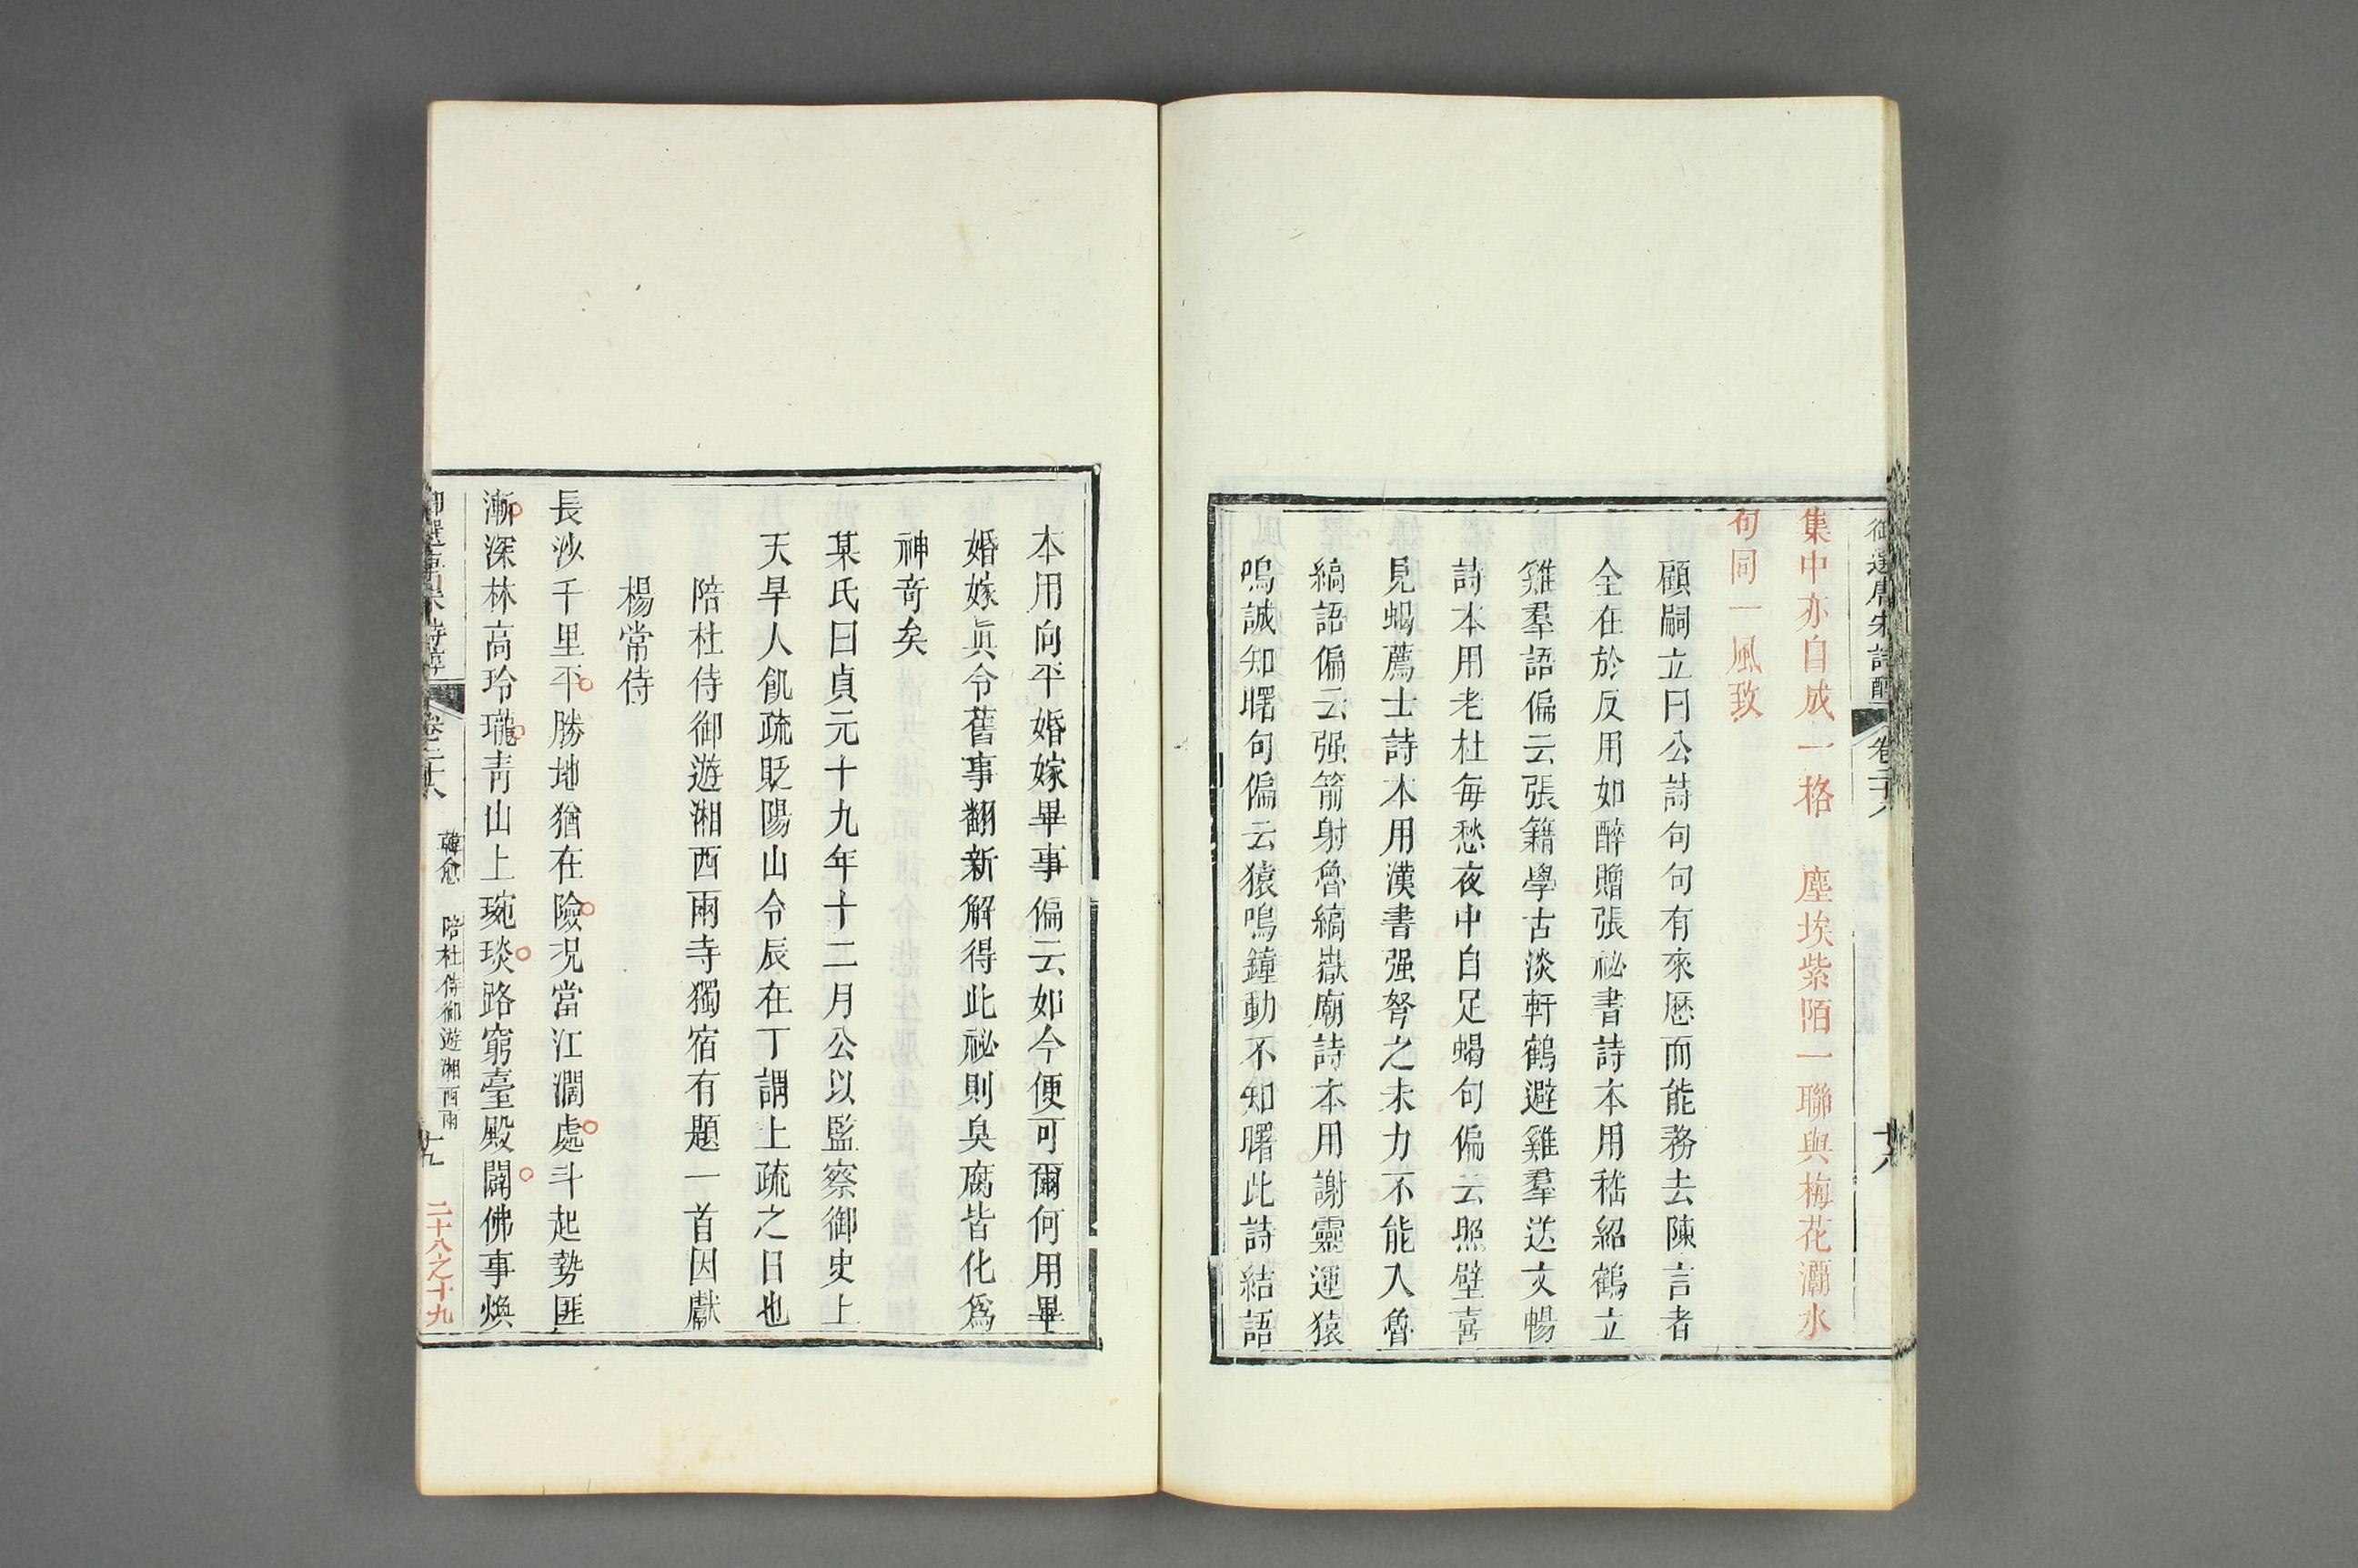 御選唐宋詩醇 卷二十八 十八
集中亦自成一格 塵埃紫陌一聯與梅花灞水
句同一風致
顧嗣立曰公詩句句有來歷而能務去陳言者
全在於反用如醉贈張祕書詩本用嵇紹鶴立
雞羣語偏云張籍學古淡軒鶴避雞羣送文暢
詩本用老杜每愁夜中自足蝎句偏云照壁喜
見蝎薦士詩本用漢書强弩之末力不能入魯
縞語偏云强箭射魯縞嶽廟詩本用謝靈運猿
鳴誠知曙句偏云猿鳴鐘動不知曙此詩結語
本用向平婚嫁畢事偏云如今便可爾何用畢
婚嫁眞令舊事翻新解得此祕則臭腐皆化爲
神奇矣
某氏曰貞元十九年十二月公以監察御史上
天旱人飢疏貶陽山令辰在丁謂上疏之日也
陪杜侍御遊湘西兩寺獨宿有題一首因獻
楊常侍
長沙千里平勝地猶在險况當江濶處斗起勢匪
漸深林高玲瓏靑山上琬琰路窮臺殿闢佛事煥
御選唐宋詩醇 卷二十八 韓愈 陪杜侍御遊湘西兩 十九 二十八之十九